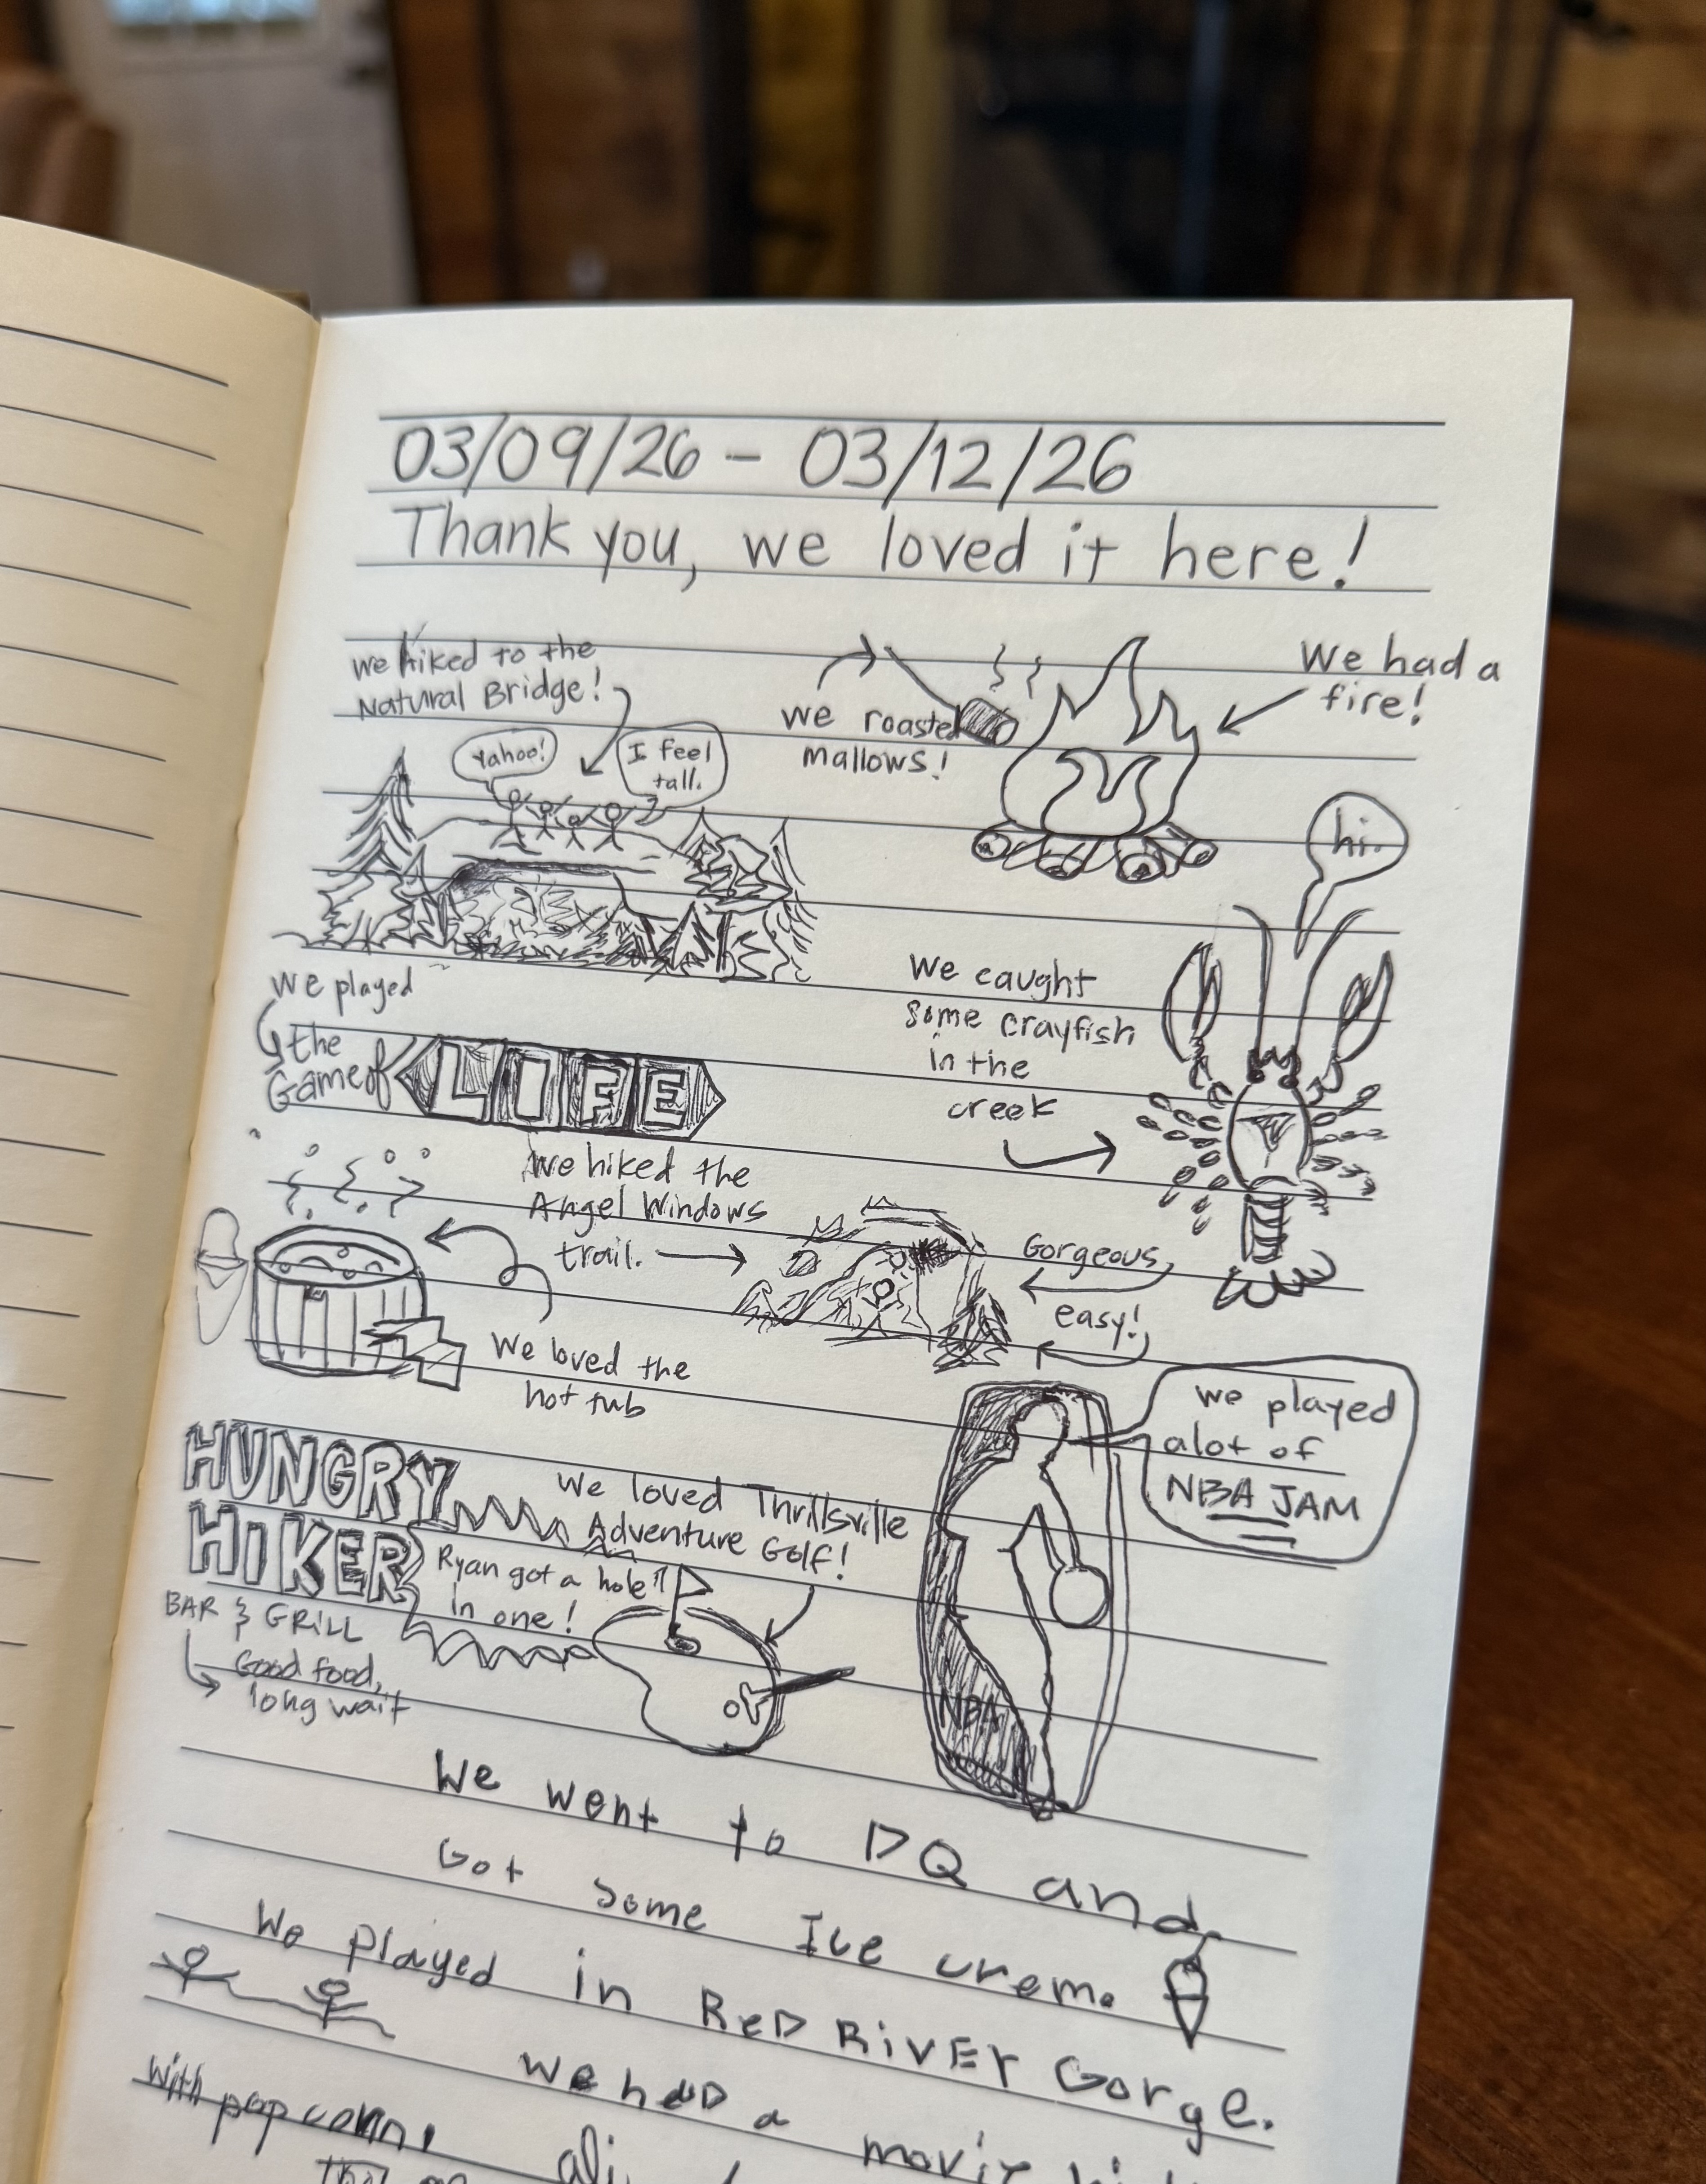 03/09/26 - 03/12/26
Thank you, we loved it here!
we hiked to the
Natural Bridge!
Yahoo!
I feel
tall.
we roasted
mallows!
We had a
fire!
hi.
We caught
some crayfish
in the
creek
we played
the
Game of
LIFE
We hiked the
Angel Windows
trail.
Gorgeous,
easy!
We loved the
hot tub
we played
alot of
NBA JAM
NBA
HUNGRY
HIKER
BAR & GRILL
Good food,
long wait
We loved Thrillsville
Adventure Golf!
Ryan got a hole
in one!
We went to DQ and
Got some Ice crem.
We played in ReD RiVEr Gorge.
We haD a movie
with popcorn!